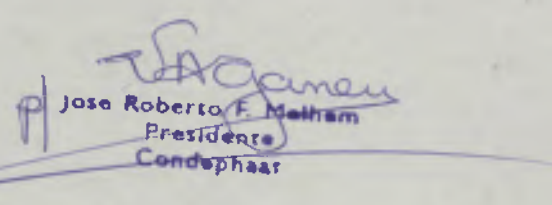 p/
Jose Roberto F. Melhem
Presidente
Condephaat